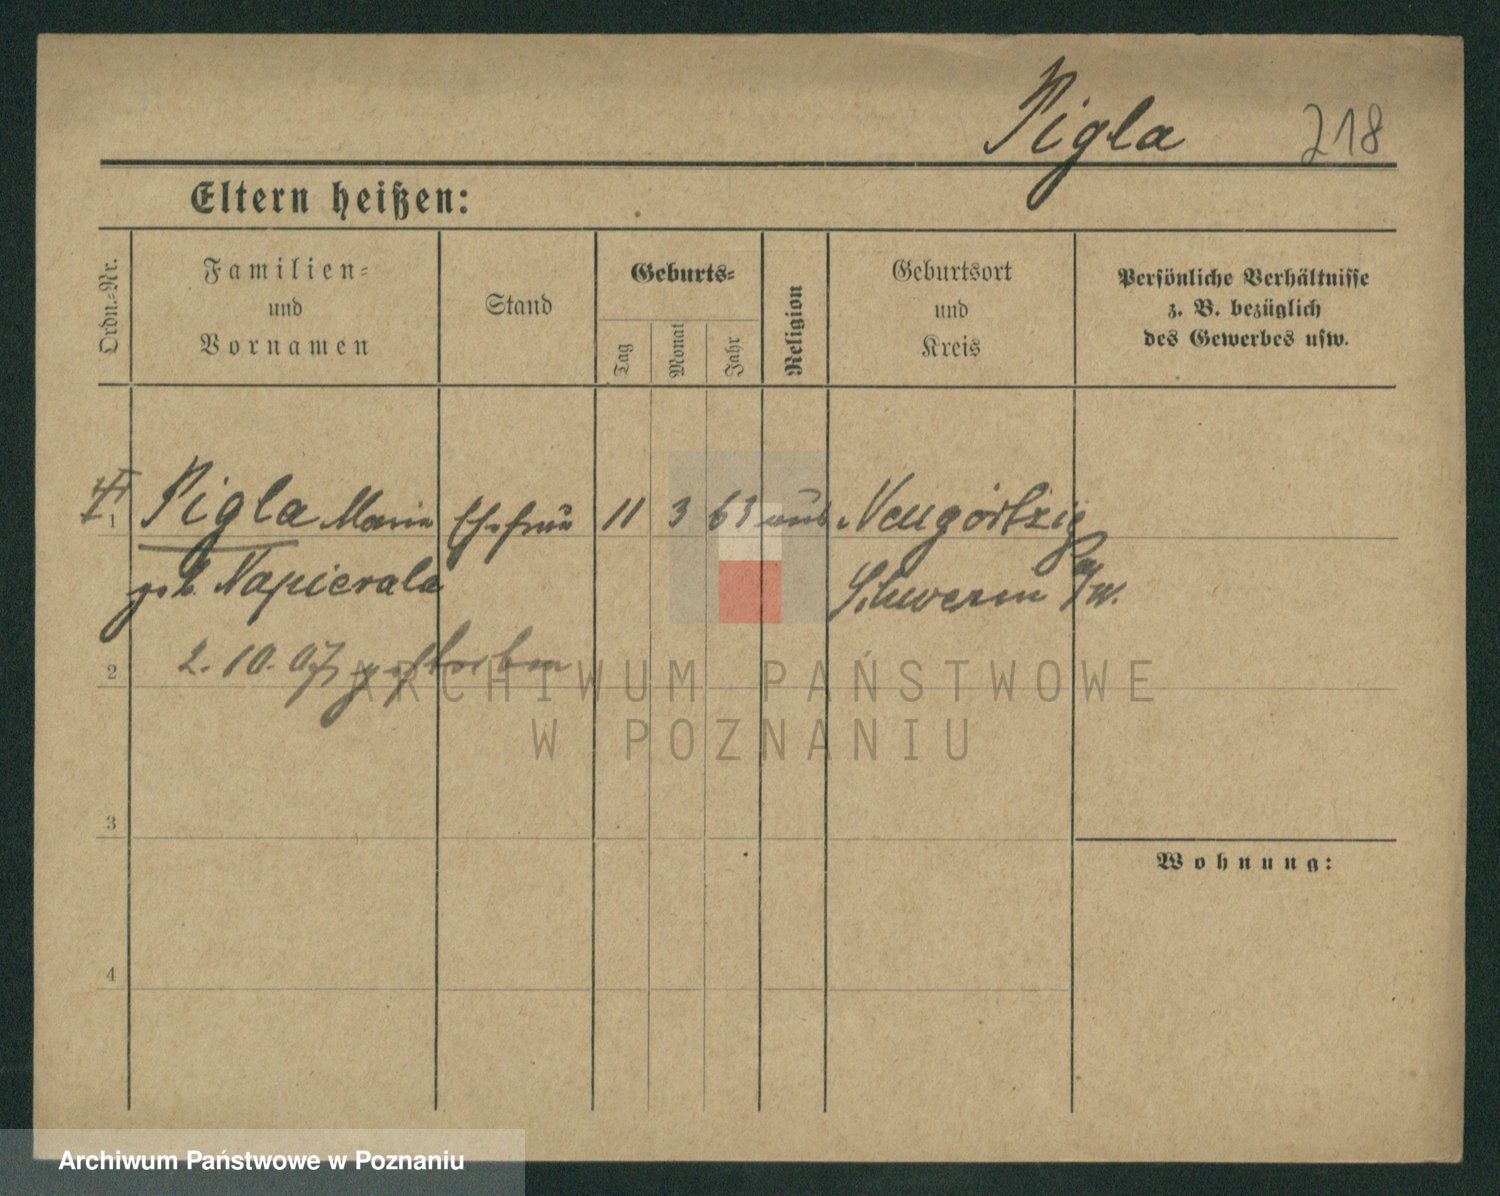 Pigla 218
Eltern heißen:
Ordn.-Nr.
Familien-
und
Vornamen
Stand
Geburts-
Tag
Monat
Jahr
Religion
Geburtsort
und
Kreis
Persönliche Verhältnisse
z. B. bezüglich
des Gewerbes usw.
1 Pigla Marie Ehefrau 11 3 63 Neugörtzig
geb. Napierala Schwerin a/W.
2. 10. 07 gestorben
2
ARCHIWUM PAŃSTWOWE
W POZNANIU
3
Wohnung:
4
Archiwum Państwowe w Poznaniu